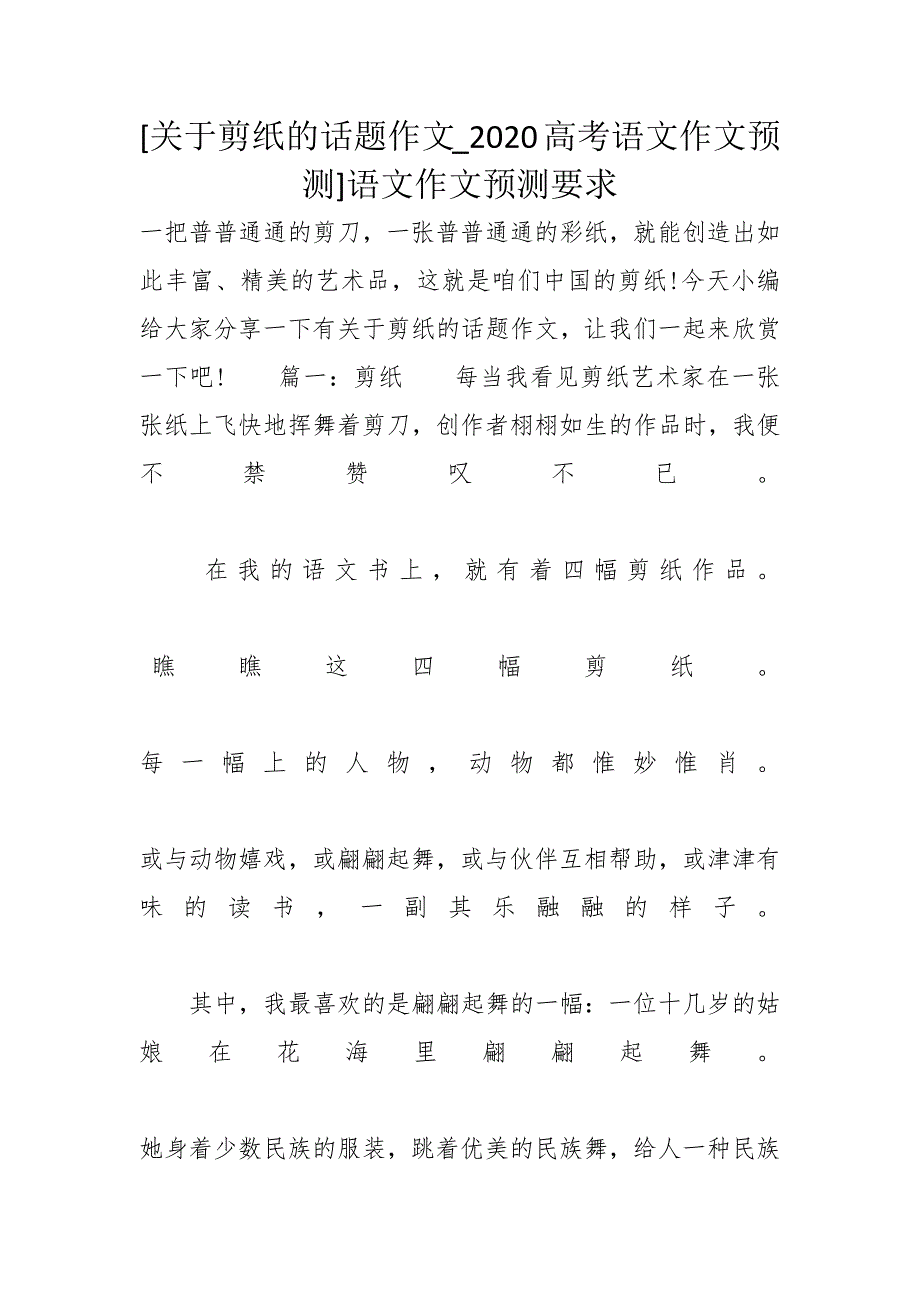 [关于剪纸的话题作文_2020高考语文作文预
测]语文作文预测要求
一把普普通通的剪刀，一张普普通通的彩纸，就能创造出如
此丰富、精美的艺术品，这就是咱们中国的剪纸!今天小编
给大家分享一下有关于剪纸的话题作文，让我们一起来欣赏
一下吧! 篇一：剪纸 每当我看见剪纸艺术家在一张
张纸上飞快地挥舞着剪刀，创作者栩栩如生的作品时，我便
不禁赞叹不已。
在我的语文书上，就有着四幅剪纸作品。
瞧瞧这四幅剪纸。
每一幅上的人物，动物都惟妙惟肖。
或与动物嬉戏，或翩翩起舞，或与伙伴互相帮助，或津津有
味的读书，一副其乐融融的样子。
其中，我最喜欢的是翩翩起舞的一幅：一位十几岁的姑
娘在花海里翩翩起舞。
她身着少数民族的服装，跳着优美的民族舞，给人一种民族